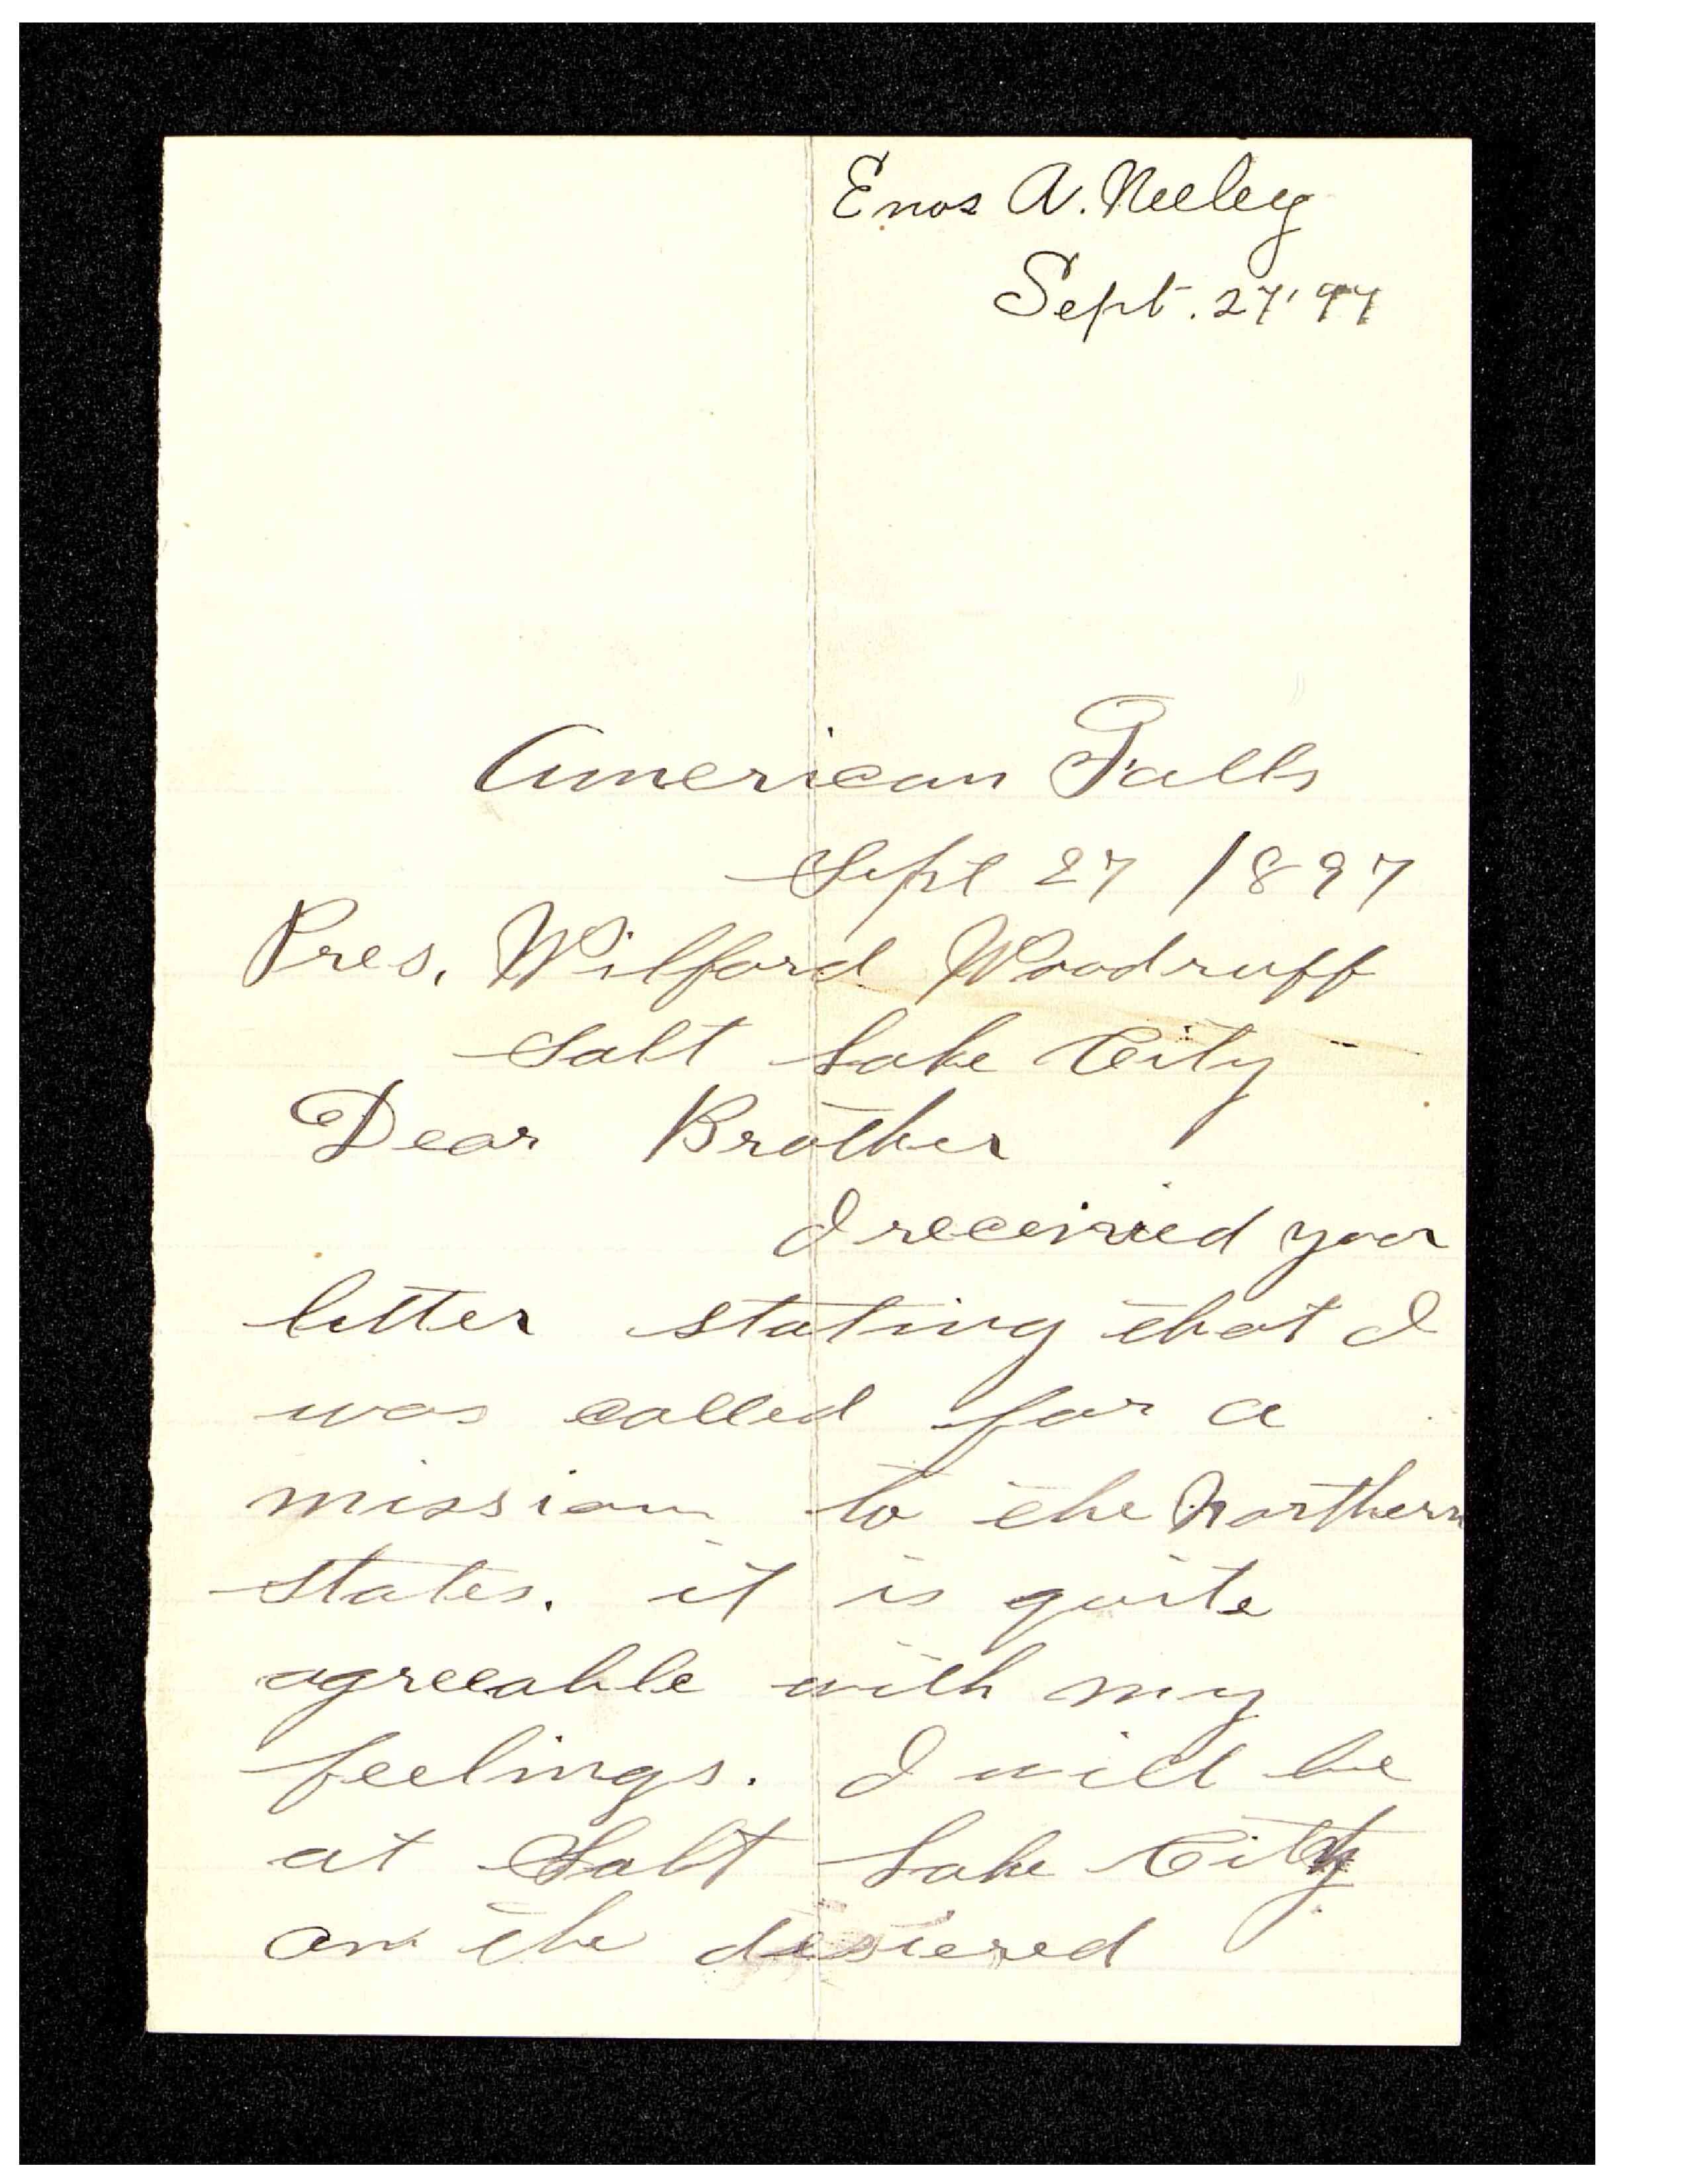 Enos A. Neeley
Sept. 27 '97
American Falls
Sept 27 1897
Pres. Wilford Woodruff
Salt Lake City
Dear Brother
I received your
letter stating that I
was called for a
mission to the Northern
States. it is quite
agreeable with my
feelings. I will be
at Salt Lake City
on the desiered